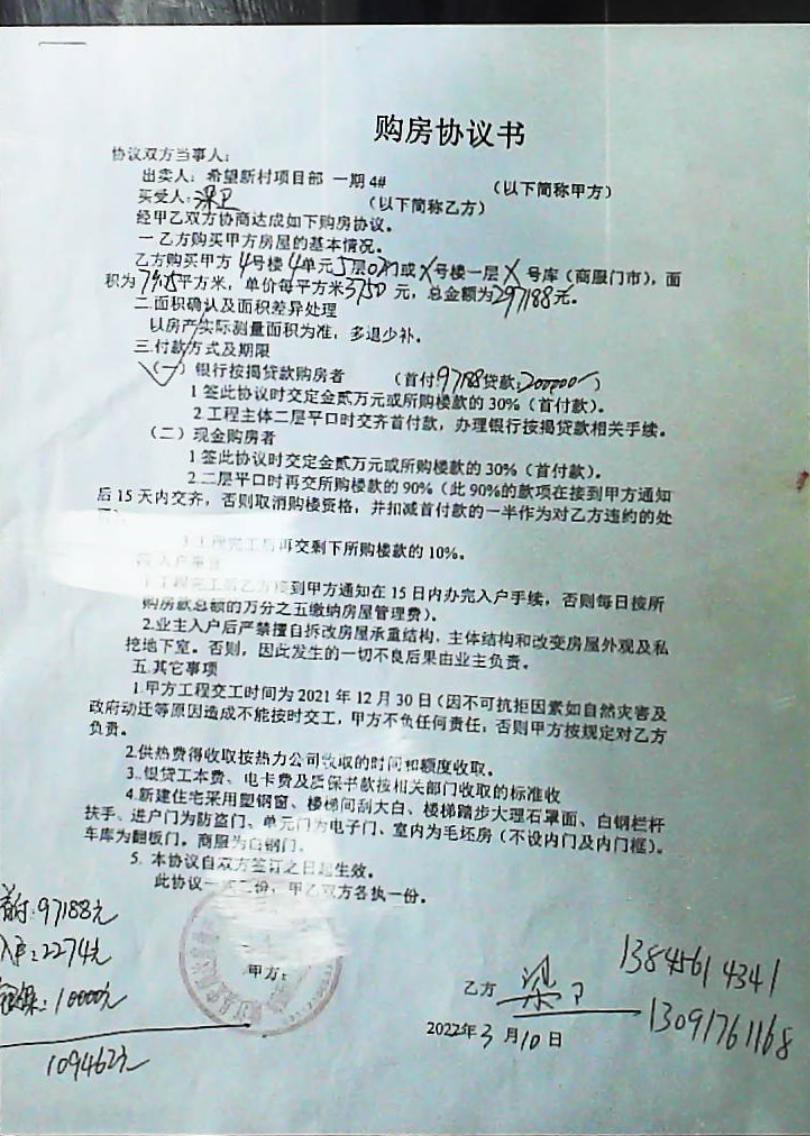 购房协议书
协议双方当事人：
出卖人：希望新村项目部 一期4# （以下简称甲方）
买受人： （以下简称乙方）
经甲乙双方协商达成如下购房协议。
一 乙方购买甲方房屋的基本情况。
乙方购买甲方 4号楼 4单元5层 或X号楼一层 X 号库（商服门市），面
积为 平方米，单价每平方米3750 元，总金额为297188元。
二.面积确认及面积差异处理
以房产实际测量面积为准，多退少补。
三.付款方式及期限
（一）银行按揭贷款购房者 （首付:97188贷款:200000）
1 签此协议时交定金贰万元或所购楼款的 30%（首付款）。
2.工程主体二层平口时交齐首付款，办理银行按揭贷款相关手续。
（二）现金购房者
1 签此协议时交定金贰万元或所购楼款的 30%（首付款）。
2.二层平口时再交所购楼款的 90%（此 90%的款项在接到甲方通知
后 15 天内交齐，否则取消购楼资格，并扣减首付款的一半作为对乙方违约的处
3.工程完工后再交剩下所购楼款的 10%。
1.工程完工后乙方接到甲方通知在 15 日内办完入户手续，否则每日按所
购房款总额的万分之五缴纳房屋管理费）。
2.业主入户后严禁擅自拆改房屋承重结构，主体结构和改变房屋外观及私
挖地下室。否则，因此发生的一切不良后果由业主负责。
五.其它事项
1.甲方工程交工时间为 2021 年 12 月 30 日（因不可抗拒因素如自然灾害及
政府动迁等原因造成不能按时交工，甲方不负任何责任；否则甲方按规定对乙方
负责。
2.供热费得收取按热力公司收取的时间和额度收取。
3..银贷工本费、电卡费及质保书款按相关部门收取的标准收
4.新建住宅采用塑钢窗、楼梯间刮大白、楼梯踏步大理石罩面、白钢栏杆
扶手、进户门为防盗门、单元门为电子门、室内为毛坯房（不设内门及内门框）。
车库为翻板门。商服为白钢门。
5. 本协议自双方签订之日起生效。
此协议一式二份，甲乙双方各执一份。
首付:97188元
入户:2274元
:10000元
109462元
甲方：
乙方
2022年3月10日
13845614341
13091761168